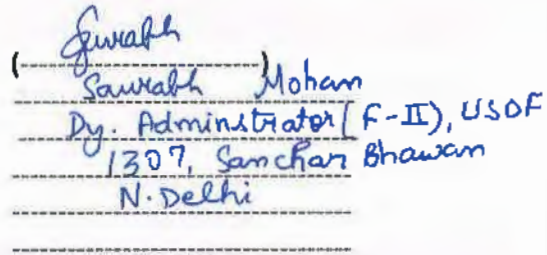 Saurabh
( )
Saurabh Mohan
Dy. Adminstrator (F-II), USOF
1307, Sanchar Bhawan
N. Delhi